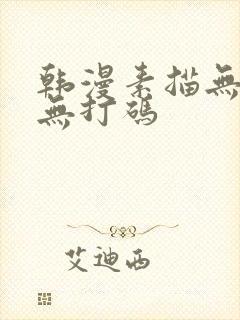 韩漫素描無
無打碼
艾迪西